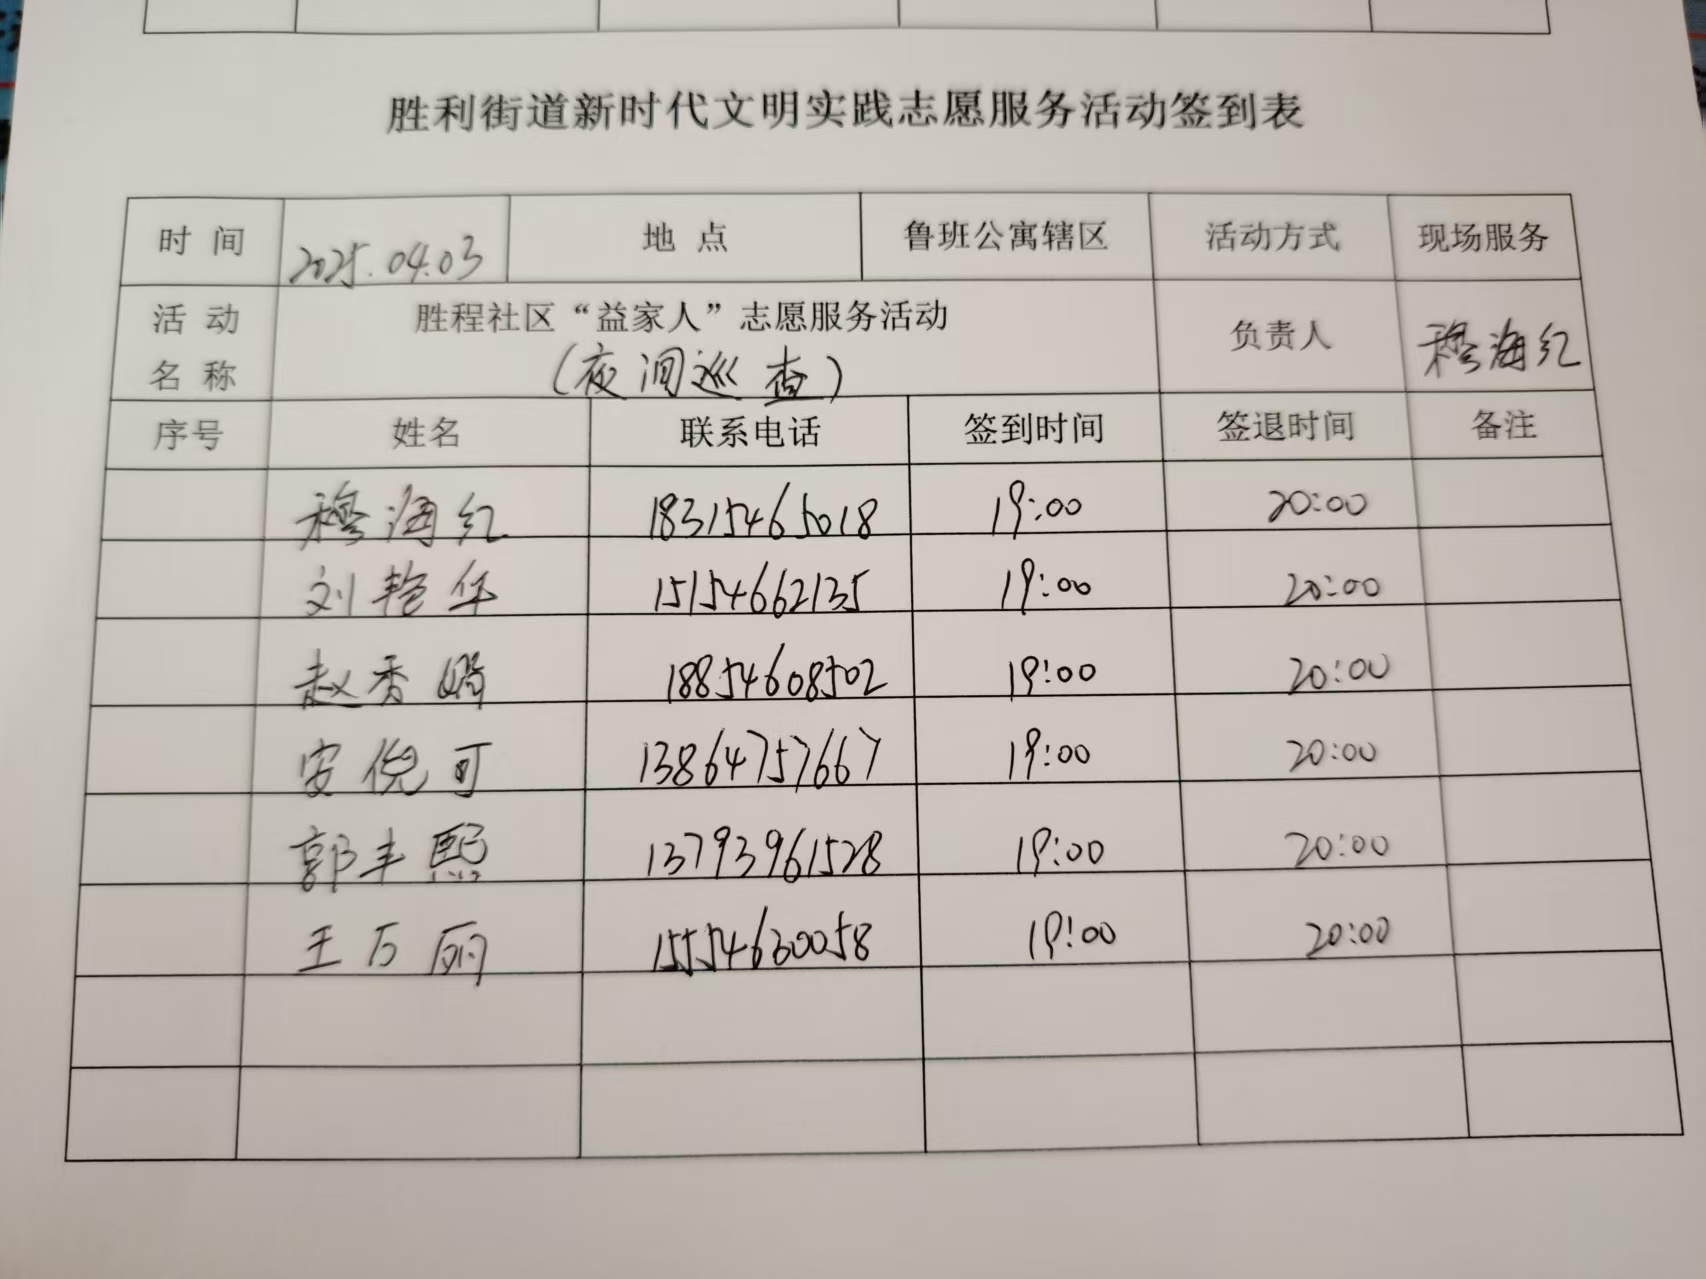 胜利街道新时代文明实践志愿服务活动签到表
时 间 2025.04.03 地 点 鲁班公寓辖区 活动方式 现场服务
活 动 名 称 胜程社区“益家人”志愿服务活动 负责人 穆海红
（夜间巡查）
序号 姓名 联系电话 签到时间 签退时间 备注
穆海红 18315465018 19:00 20:00
刘艳华 15154662135 19:00 20:00
赵秀娟 18854608502 19:00 20:00
安倪可 13864757667 19:00 20:00
郭丰熙 13793961528 19:00 20:00
王万丽 15554630058 19:00 20:00